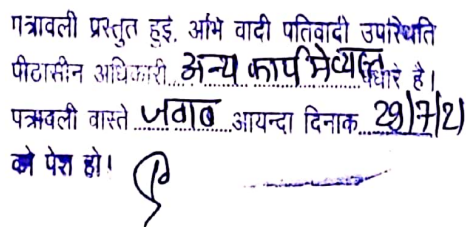 पत्रावली प्रस्तुत हुई. अभि वादी पतिवादी उपस्थिति
पीठासीन अधिकारी अन्य कार्य मे व्यस्त धारे है।
पत्रावली वास्ते जवाब आयन्दा दिनाक 29/7/21
को पेश हो।